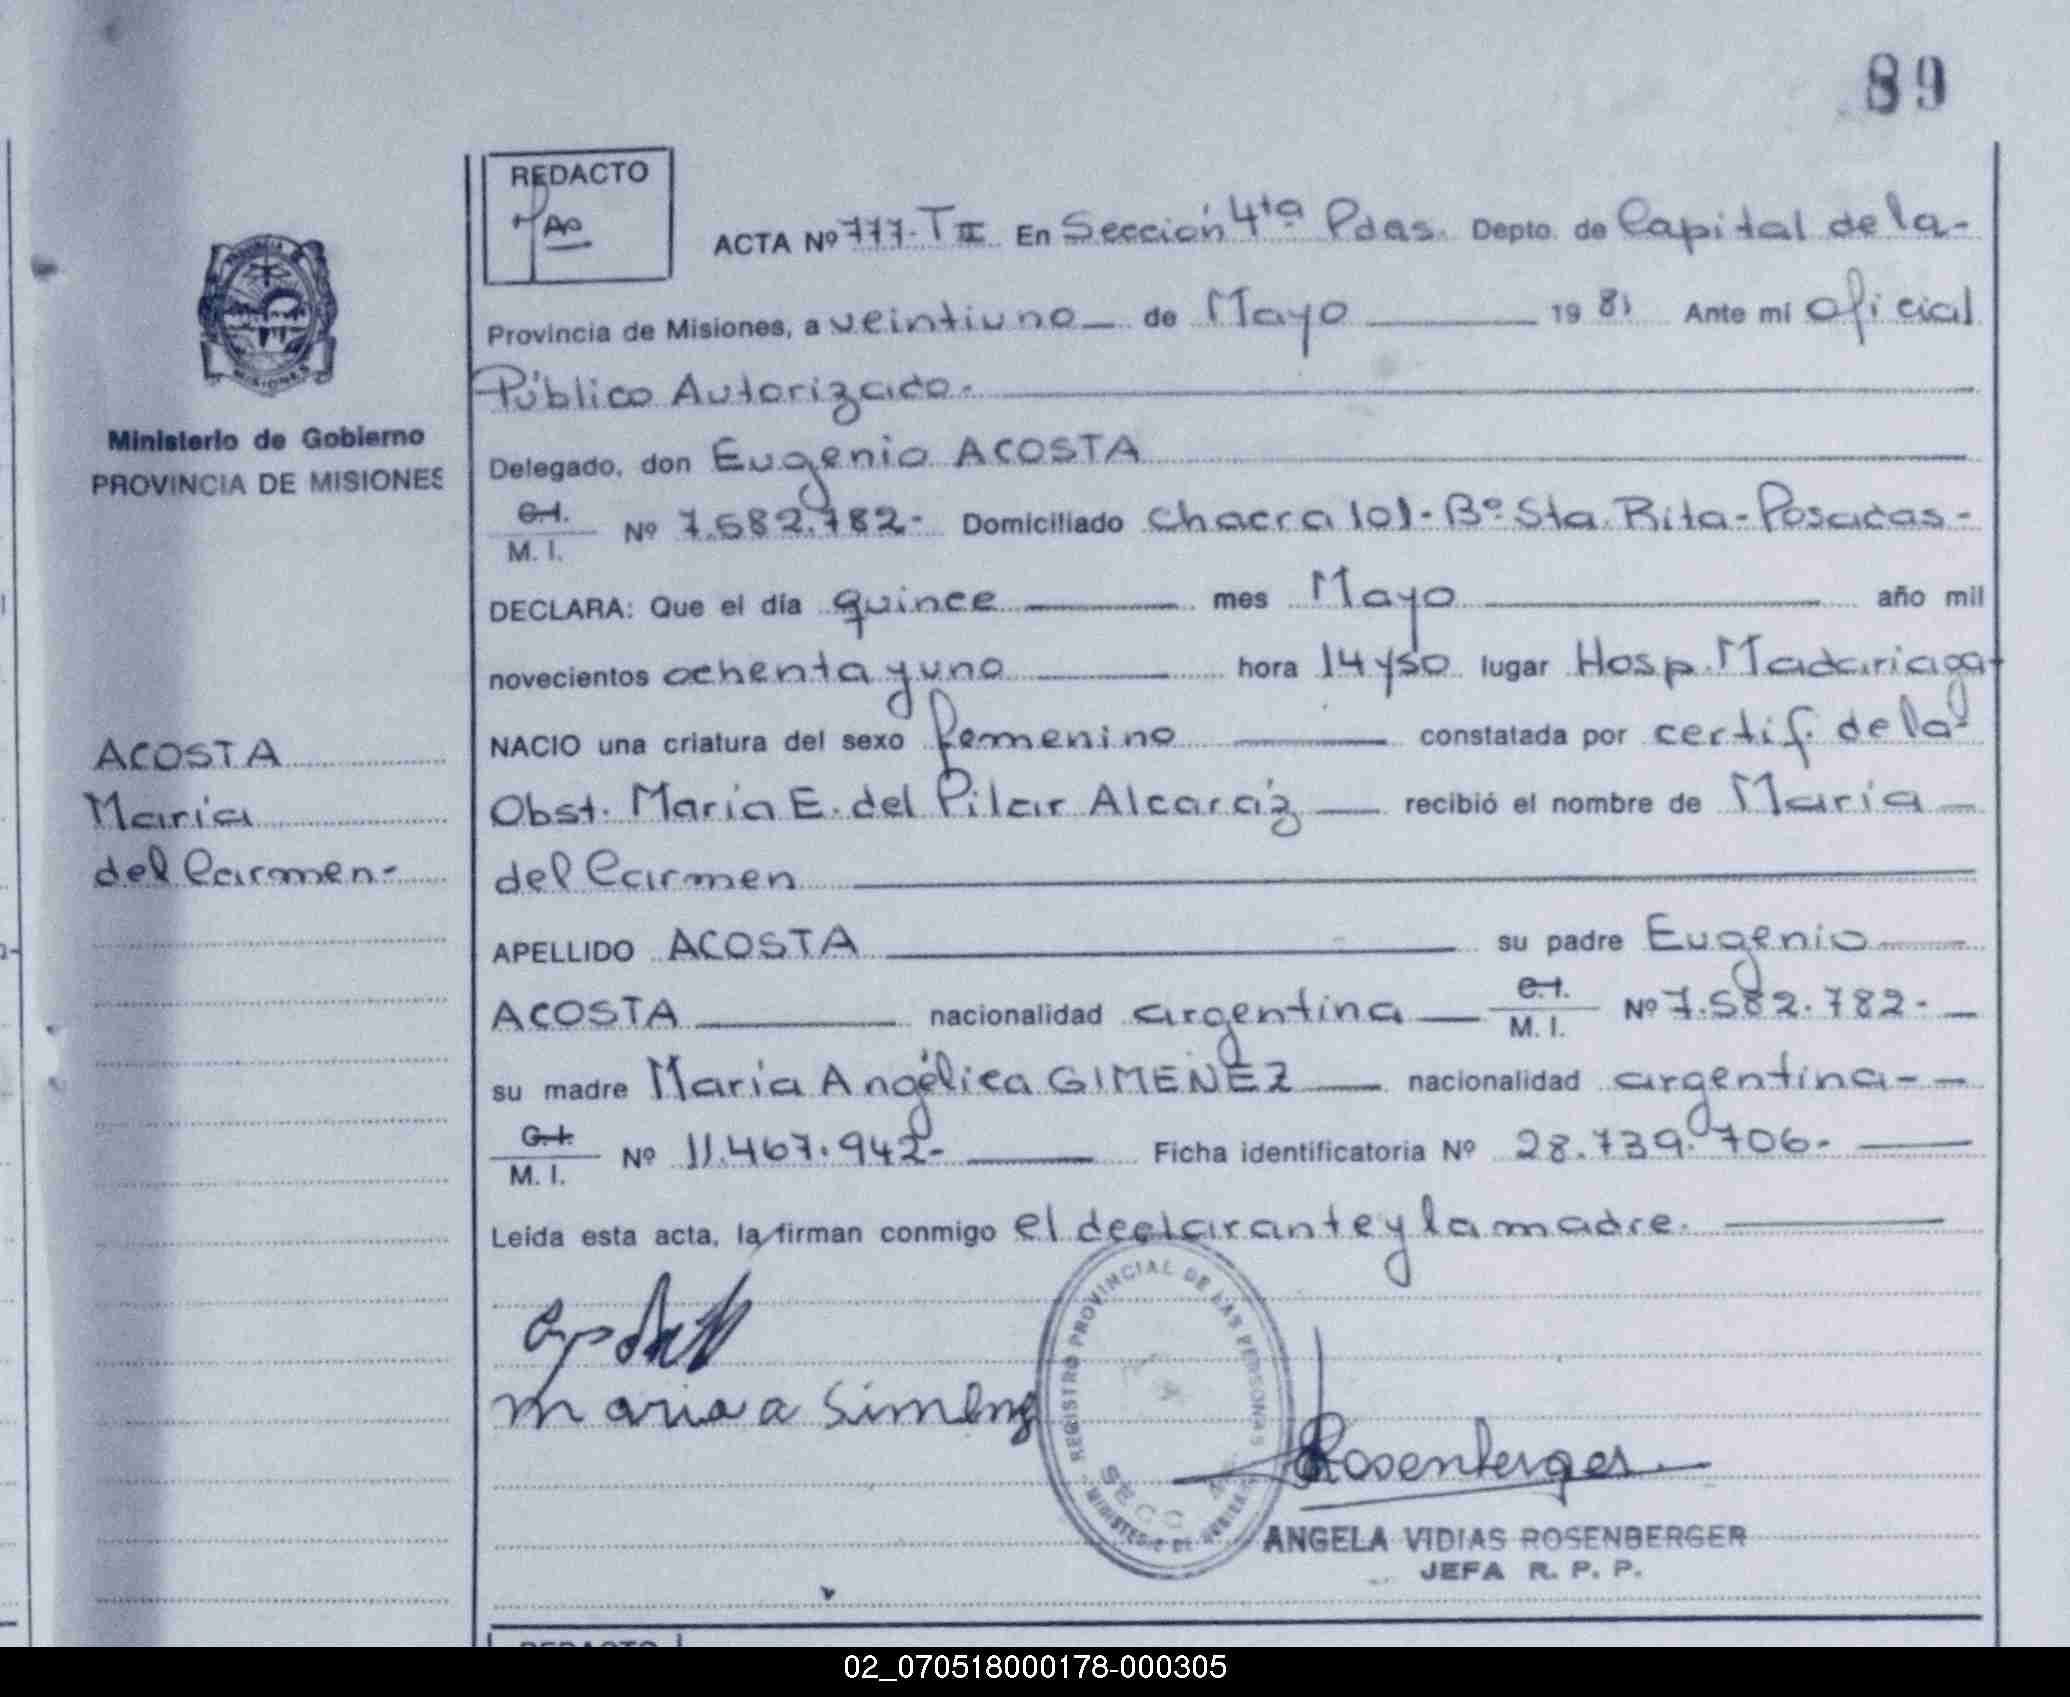 89
REDACTO
ACTA Nº 777-T II En Sección 4ta Pdas. Depto. de Capital de la-
Provincia de Misiones, a veintiuno de Mayo 1981 Ante mí oficial
Público Autorizado.
Ministerio de Gobierno
PROVINCIA DE MISIONES
MISIONES
Delegado, don Eugenio ACOSTA
C.I.
M. I. Nº 7.582.782- Domiciliado chacra 101-Bº Sta. Rita-Posadas-
DECLARA: Que el día quince mes Mayo año mil
novecientos ochenta y uno hora 14 y 50 lugar Hosp. Madariaga
NACIO una criatura del sexo femenino constatada por certif. de la
ACOSTA
María
del Carmen-
Obst. María E. del Pilar Alcaráz recibió el nombre de María
del Carmen
APELLIDO ACOSTA su padre Eugenio
ACOSTA nacionalidad argentina C.I.
M. I. Nº 7.582.782-
su madre María Angélica GIMENEZ nacionalidad argentina--
C.I.
M. I. Nº 11.467.942- Ficha identificatoria Nº 28.739.706-
Leída esta acta, la firman conmigo el declarante y la madre.
maria a Simenz
REGISTRO PROVINCIAL DE LAS PERSONAS
SECC
Rosenberger
ANGELA VIDIAS ROSENBERGER
JEFA R. P. P.
REDACTO
02_070518000178-000305